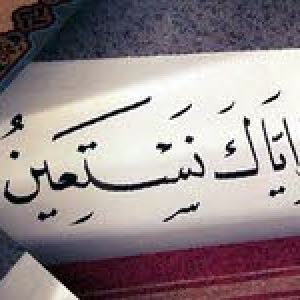 وَاِيَّاكَ نَسْتَعِينُ